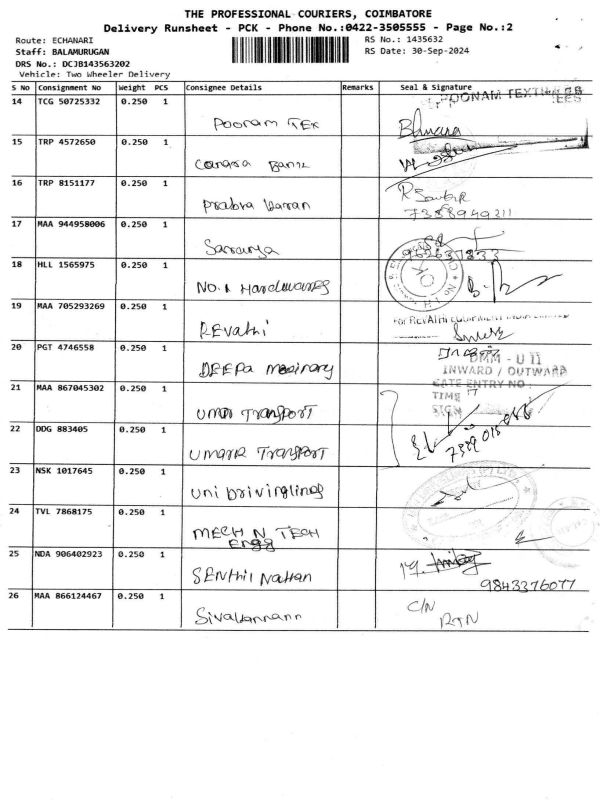 THE PROFESSIONAL COURIERS, COIMBATORE
Delivery Runsheet - PCK - Phone No.:0422-3505555 - Page No.:2
Route: ECHANARI
RS No.: 1435632
Staff: BALAMURUGAN
RS Date: 30-Sep-2024
DRS No.: DCJB143563202
Vehicle: Two Wheeler Delivery
S No Consignment No Weight PCS Consignee Details Remarks Seal & Signature
14 TCG 50725332 0.250 1 Poonam Tex POONAM TEXTILES
15 TRP 4572650 0.250 1 Canara Bank
16 TRP 8151177 0.250 1 Prabha karan 7358949211
17 MAA 944958006 0.250 1 Saranya
18 HLL 1565975 0.250 1 No.1 Hardwares OK
19 MAA 705293269 0.250 1 REvathi For REVATHI EQUIPMENT INDIA LIMITED
20 PGT 4746558 0.250 1 DEEPa
DMM - U II
INWARD / OUTWARD
GATE ENTRY NO :
TIME
SIGN
21 MAA 867045302 0.250 1 Transport
22 DDG 883405 0.250 1 Transport
23 NSK 1017645 0.250 1
24 TVL 7868175 0.250 1 MECH N TECH
Engg
25 NDA 906402923 0.250 1 SENthil Nathan 9843376077
26 MAA 866124467 0.250 1 C/N
RTN